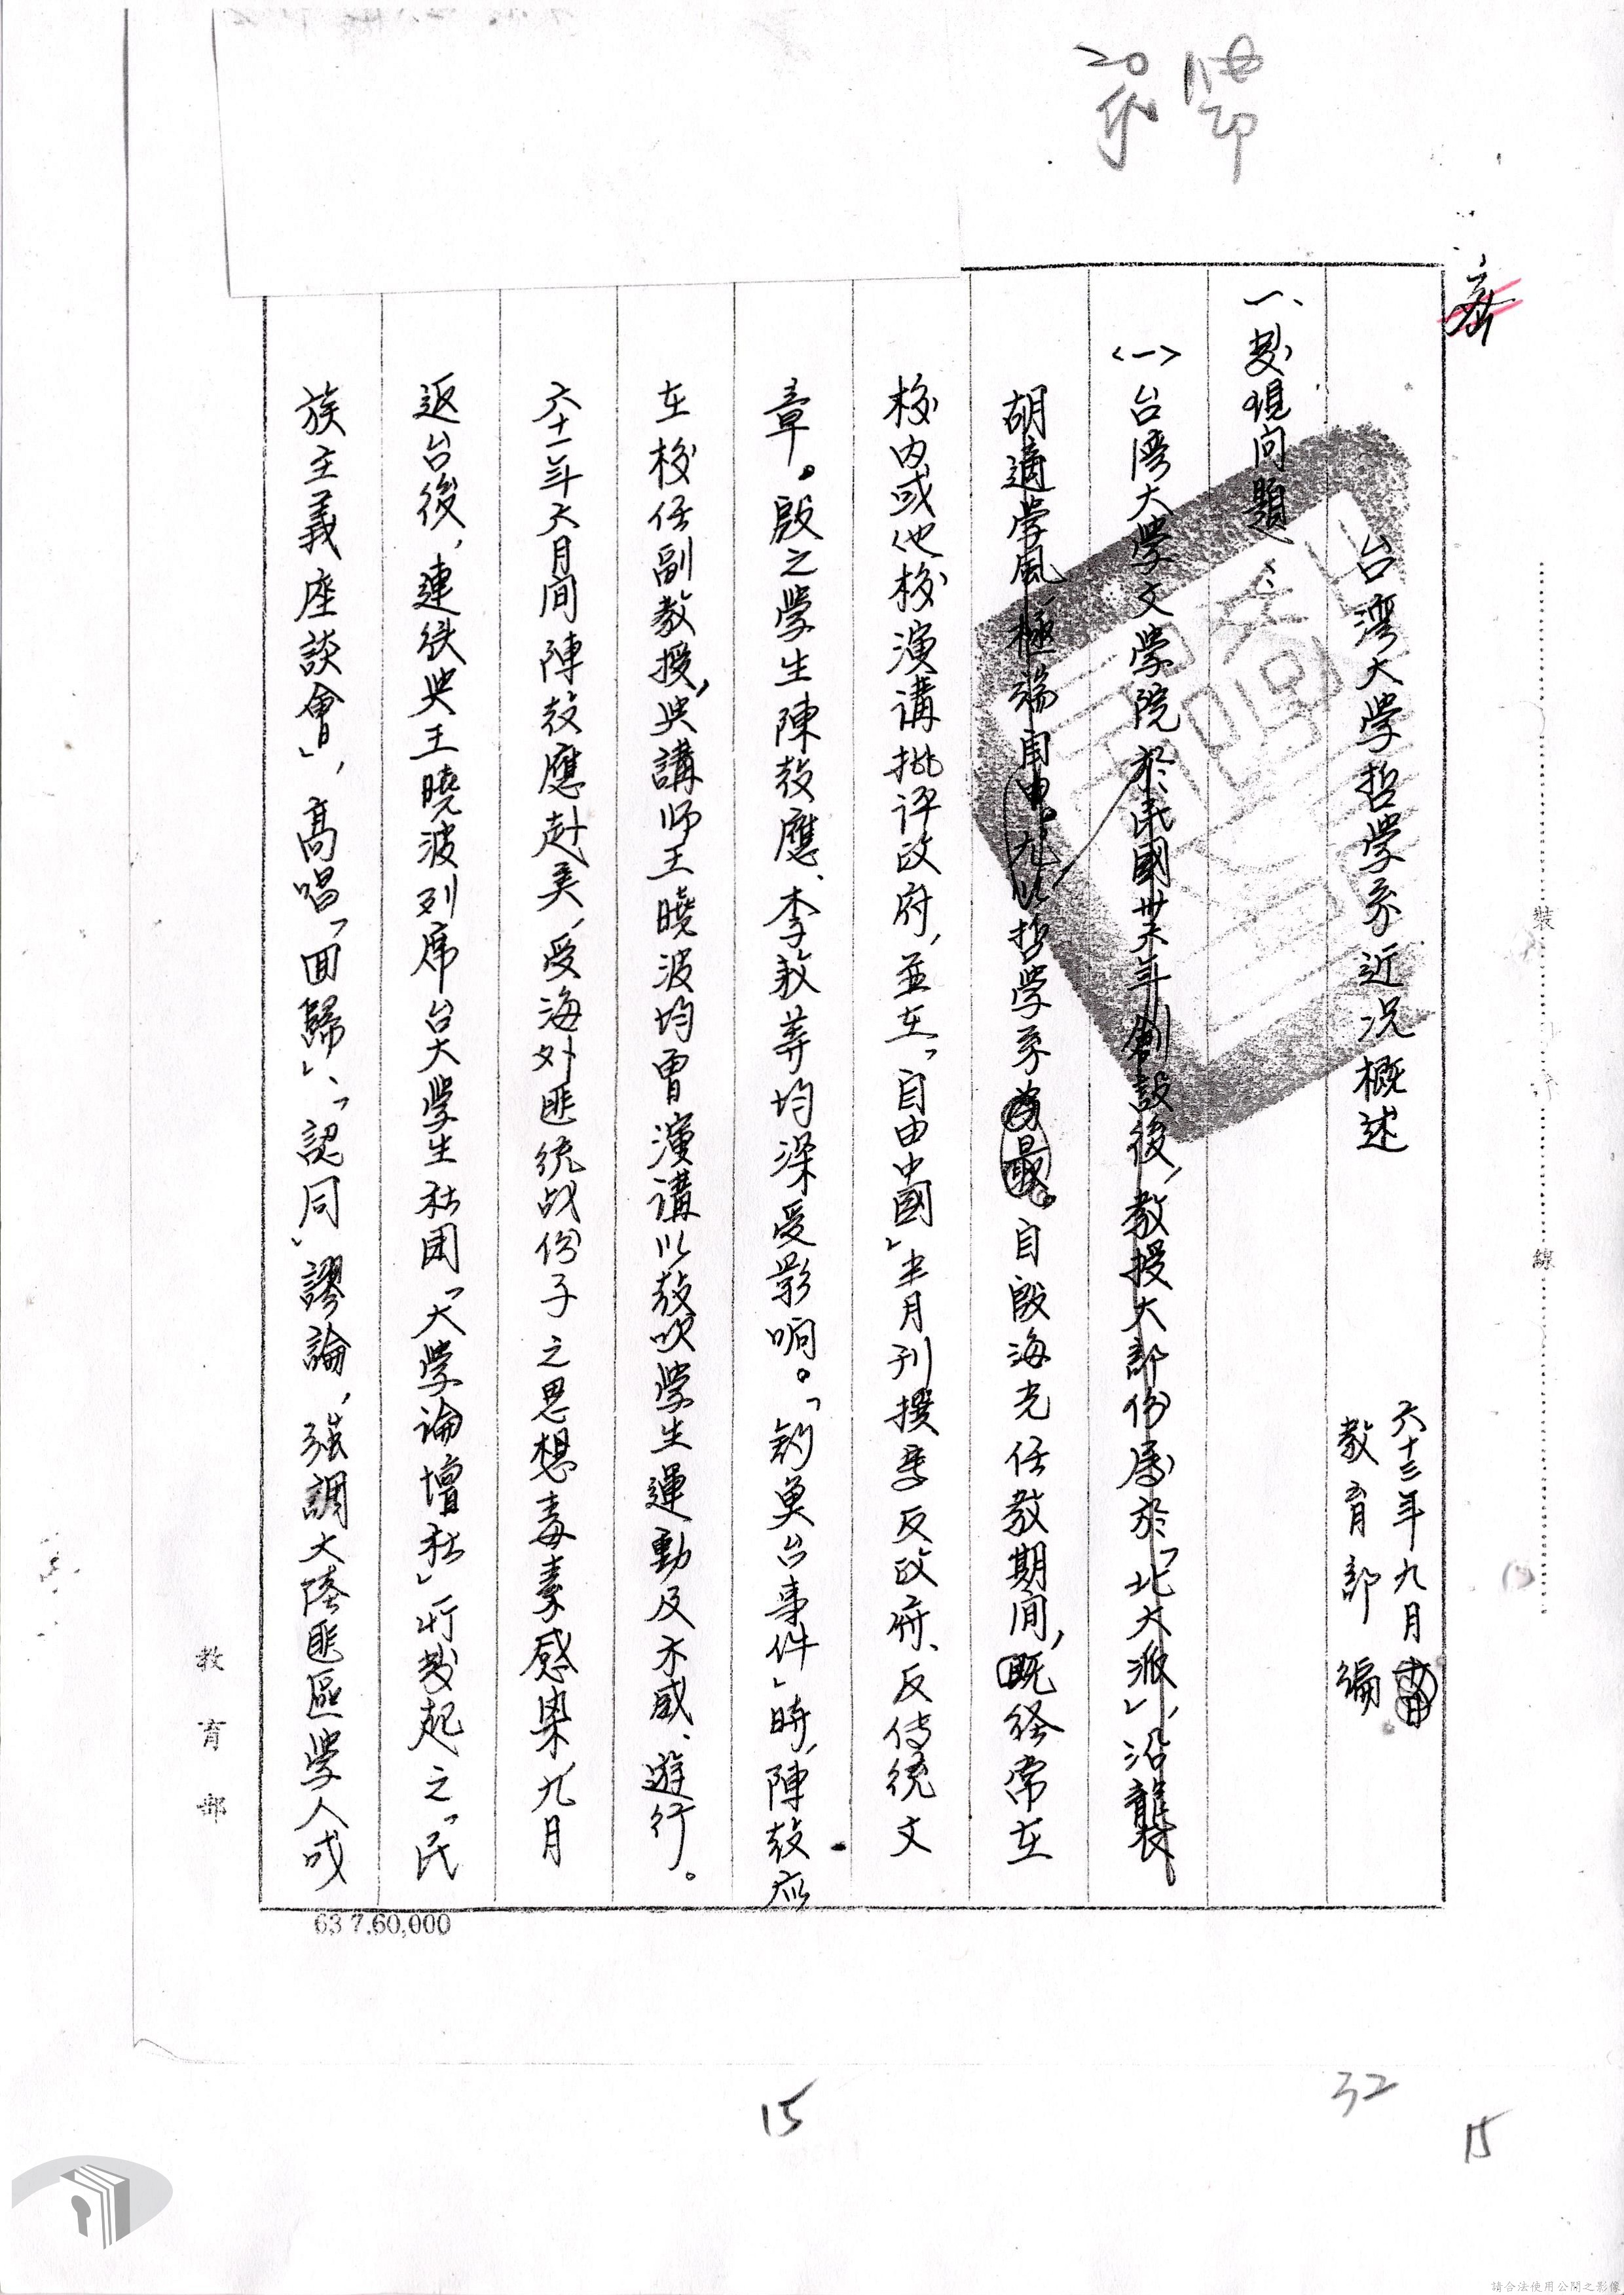 密
台湾大学哲学系近况概述
六十三年九月
教育部編
一、發現问題：
<一>台湾大学文学院於民國卅四年創設後，教授大部份屬於「北大派」，沿襲
胡適学風，極端自由。尤以哲学系為最。自殷海光任教期间，既经常在
校内或他校演講批评政府，並在「自由中國」半月刊撰章反政府、反传统文
章。殷之学生陳鼓應、李敖等均深受影响。「釣魚台事件」時，陳鼓应
在校任副教授，與講师王曉波均曾演講以鼓吹学生運動及示威、遊行。
六十一年六月间陳鼓應赴美，受海外匪统战份子之思想毒素感染，九月
返台後，連续與王曉波列席台大学生社团「大学論壇社」所發起之「民
族主義座談會」，高唱「回歸」、「認同」謬論，强調大陸匪區学人或
教育部
裝
訂
線
63 7.60,000
20
15
32
15
請合法使用公開之影像